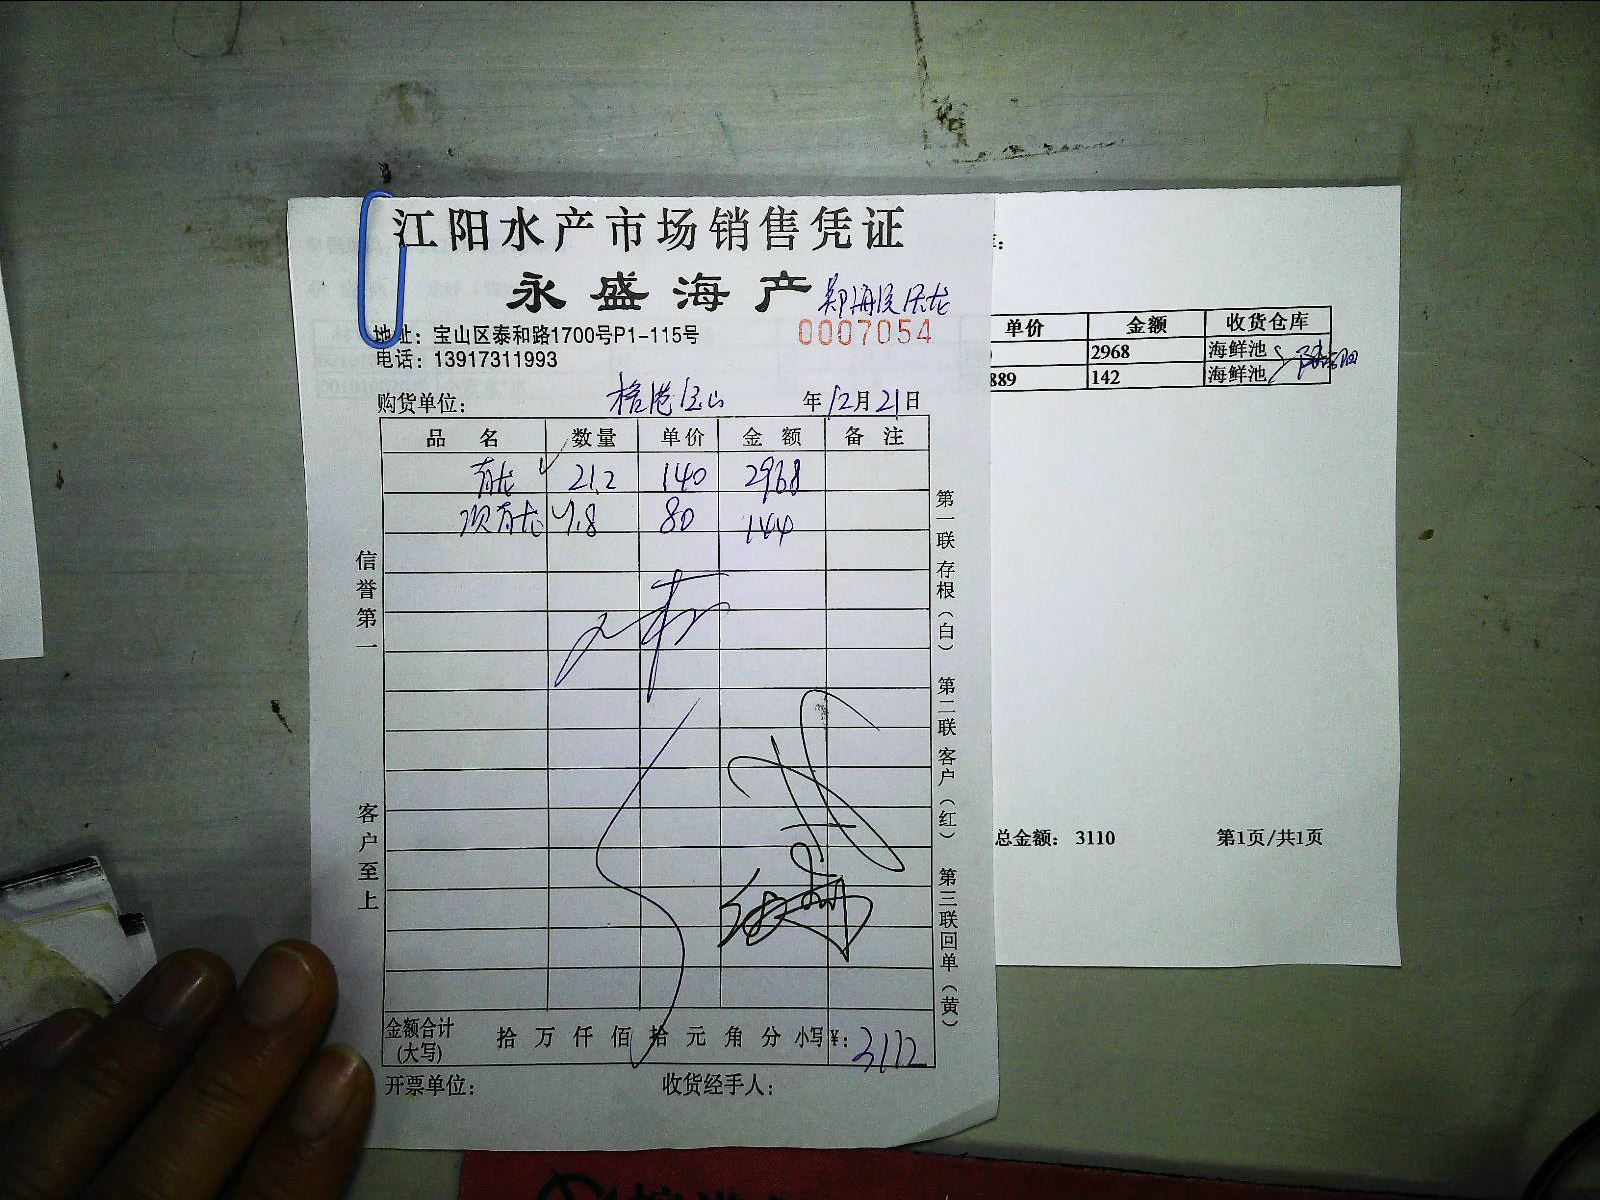 江阳水产市场销售凭证
永盛海产
0007054
地址：宝山区泰和路1700号P1-115号
电话：13917311993
购货单位： 宝山 年12月21日
品名 数量 单价 金额 备注
青龙 21.2 140 2968
1.8 80 144
信誉第一
客户至上
第一联存根（白） 第二联客户（红） 第三联回单（黄）
金额合计（大写） 拾万仟佰拾元角分 小写¥： 3112
开票单位： 收货经手人：
单价 金额 收货仓库
2968 海鲜池
889 142 海鲜池
总金额： 3110 第1页/共1页